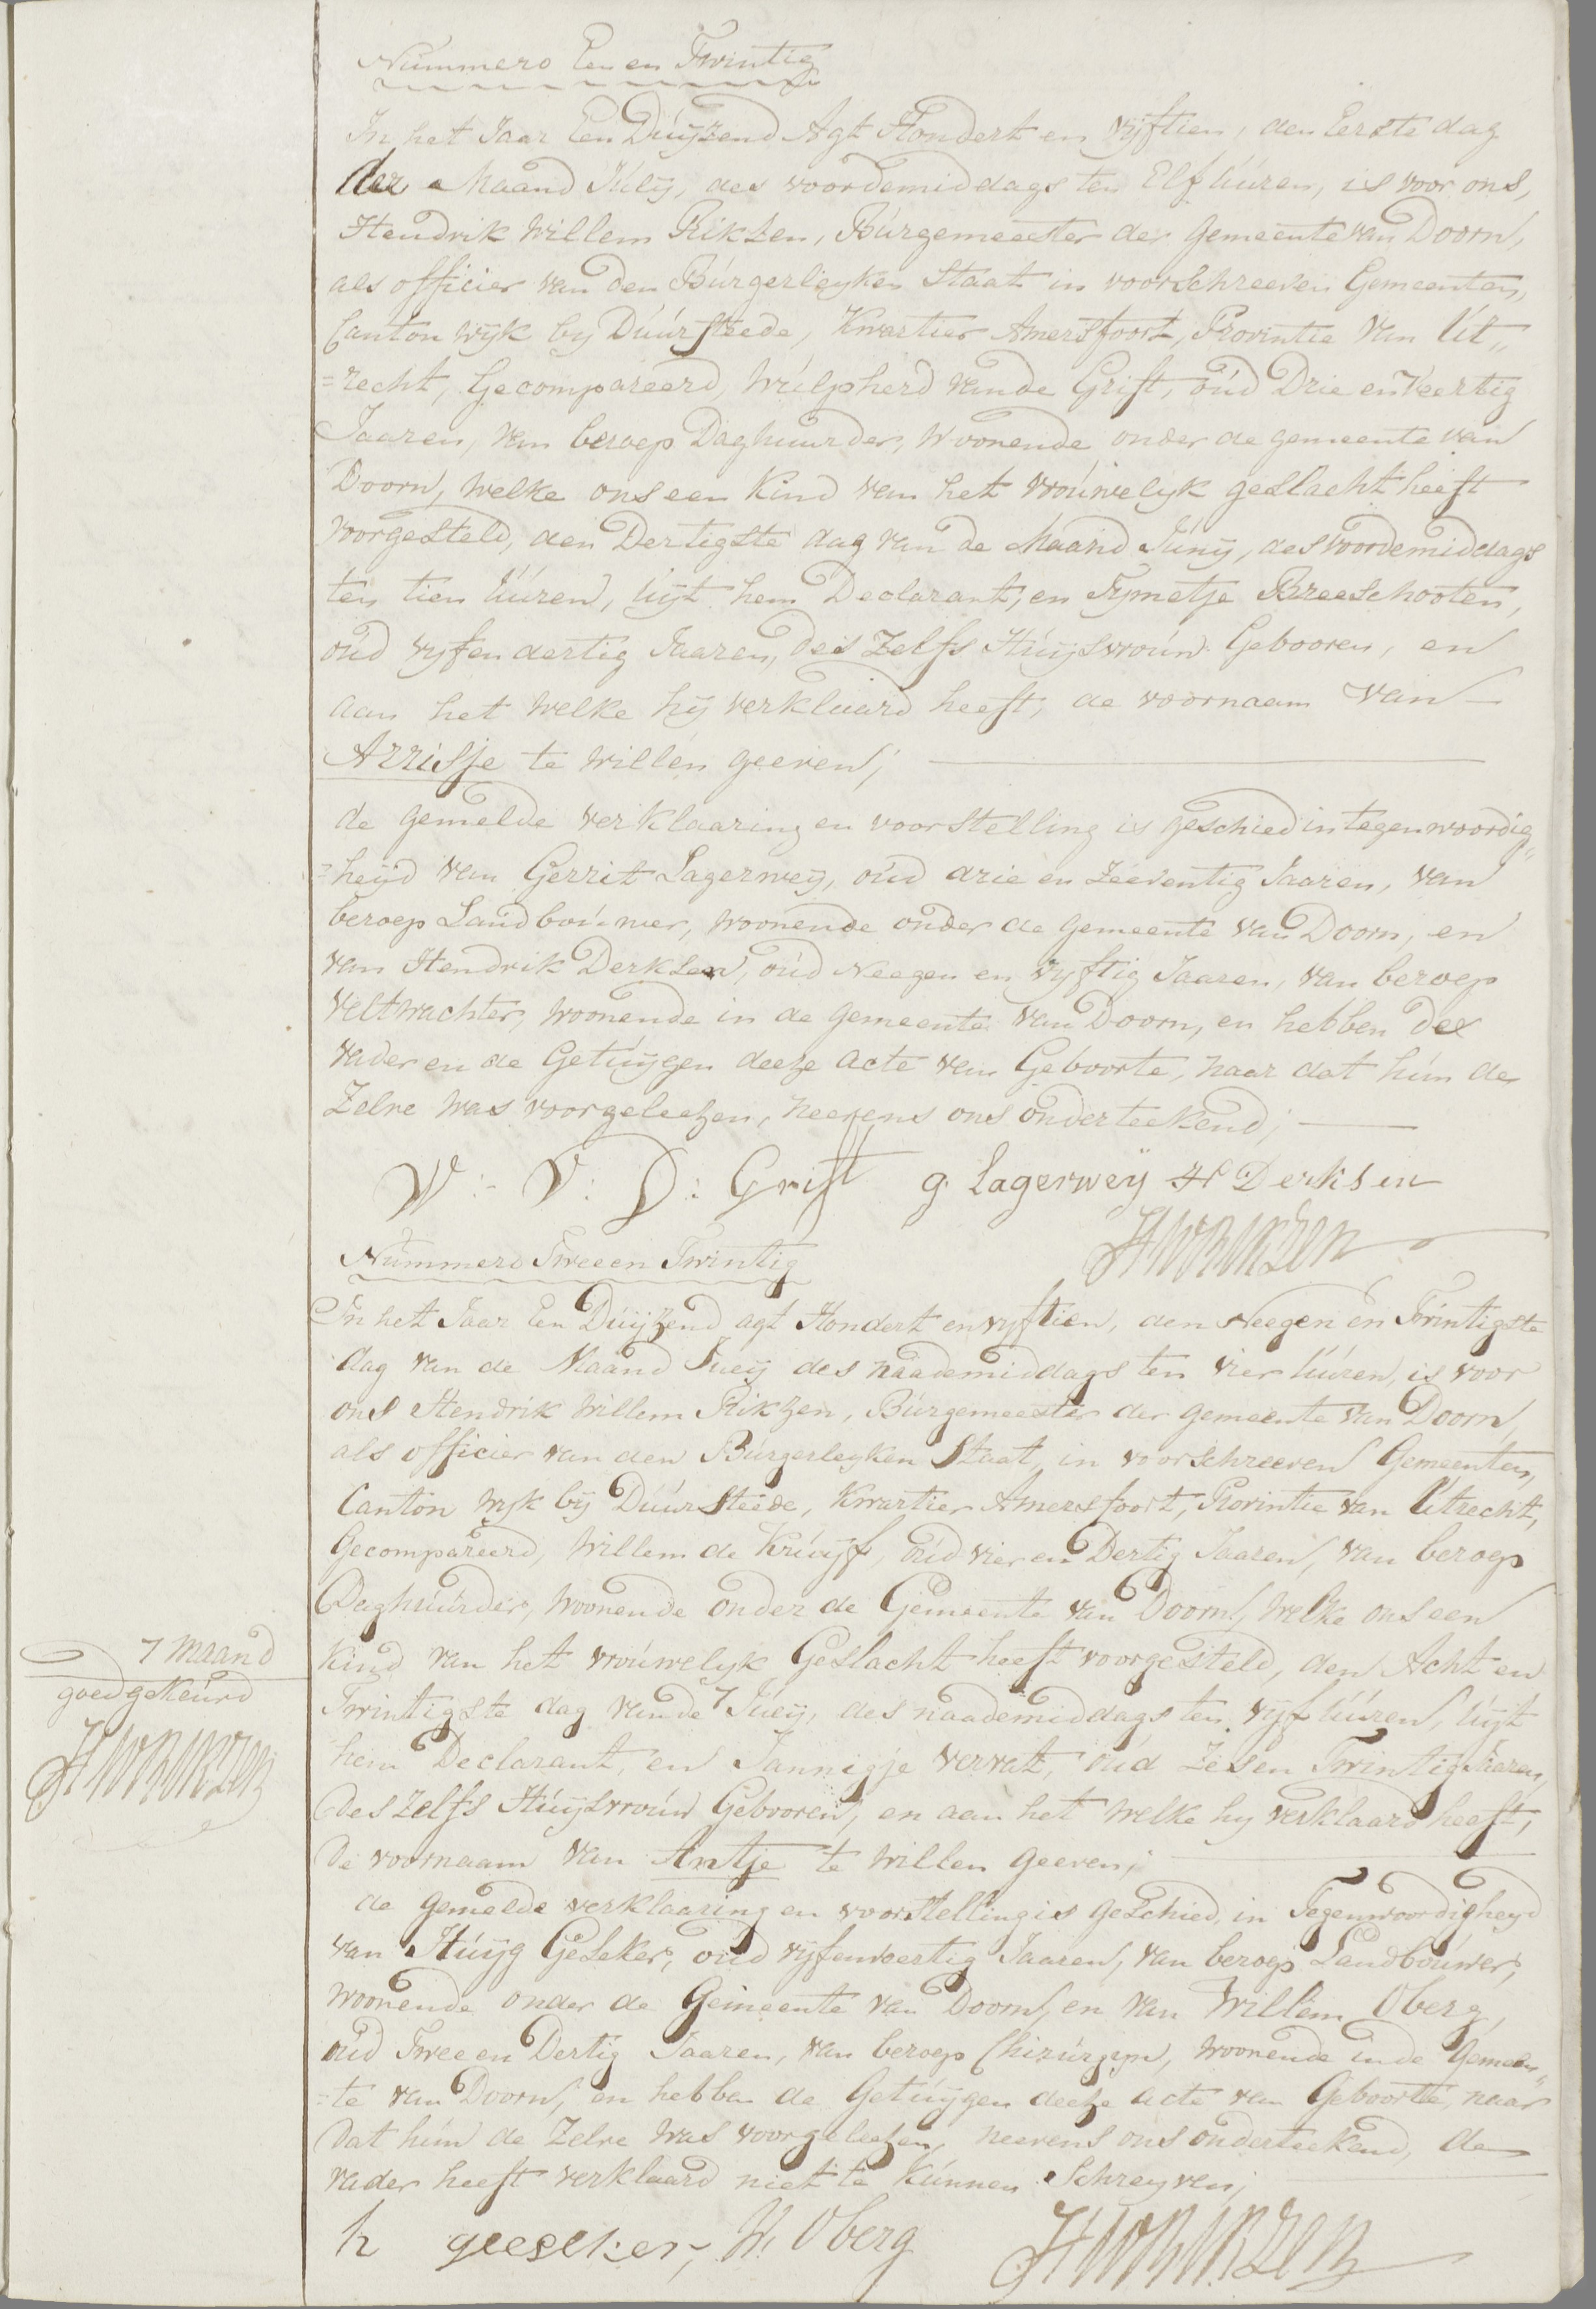 Nummero Een en Twintig
In het Jaar Een Duijzend Agt Hondert en Vyftien, den Eerste dag
der Maand Julij, des voordemiddags ten Elf uuren, is voor ons,
Hendrik Willem Rikzen, Burgemeester der Gemeente van Doorn,
als officier van den Burgerleyken Staat in voorschreeven Gemeenten,
Canton Wyk by Duursteede, Kwartier Amersfoort, Provintie Van Ut„
=recht, Gecompareerd, Wulpherd van de Grift, oud Drie en Veertig
Jaaren, van beroep Daghuurder, Woonende onder de gemeente van
Doorn, Welke ons een Kind van het vrouwelyk geslacht heeft
voorgesteld, den Dertigste dag van de Maand Junij, des voordemiddags
ten tien uuren, uijt hem Declarant, en Tymetje Breeschooten,
oud vyfendertig Jaaren, deszelfs Huijsvrouw Gebooren, en
aan het Welke hij verklaard heeft, de voornaam Van
Arrisje te willen geeven;
de gemelde verklaaring en voorstelling is geschied in tegenwoordig„
=heijd van Gerrit Lagerweij, oud drie en Zeeventig Jaaren, van
beroep Landbouwer, woonende onder de gemeente van Doorn, en
van Hendrik Derksen, oud Neegen en Vyftig Jaaren, van beroep
Veltwachter, Woonende in de gemeente van Doorn, en hebben der
Vader en de Getuijgen deeze acte van Geboorte, naar dat hun de
Zelve was voorgeleezen, neevens ons onderteekend;
W: V: D: Grift g. Lagerweij H Derksen
HWRIKZEN
Nummero Twee en Twintig
In het Jaar Een Duijzend agt Hondert en vyftien, den Neegen en Twintigste
dag van de Maand Jueij des naademiddags ten vier uuren, is voor
ons Hendrik Willem Rikzen, Burgemeester der gemeente van Doorn,
als officier van den Burgerleyken Staat, in voorschreeven Gemeenten,
Canton Wyk bij Duursteede, Kwartier Amersfoort, Provintie van Utrecht,
Gecompareerd, Willem de Kruijf, oud vier en Dertig Jaaren, van beroep
Daghuurder, woonende onder de Gemeente van Doorn, Welke ons een
Kind van het vrouwelyk Geslacht heeft voorgesteld, den Acht en
Twintigste dag van de 7 Jueij, des naademiddags ten vyf uuren, uijt
hem Declarant, en Jannigje Vervat, oud Zes en Twintig Jaaren,
deszelfs Huijsvrouw Gebooren, en aan het Welke hy verklaard heeft,
de voornaam van Antje te willen geeven;
de gemelde verklaaring en voorstelling is geschied, in Tegenwoordigheyd
van Huijg Geseker, oud vyfenveertig Jaaren, van beroep Landbouwer,
woonende onder de Gemeente van Doorn, en van Willem Oberg,
oud Twee en Dertig Jaaren, van beroep Chirurgyn, woonende in de Gemeen„
=te van Doorn, en hebben de Getuijgen deeze acte van Geboorte, naar
dat hun de Zelve was voorgeleezen, neevens ons onderteekend, de
vader heeft verklaard niet te kunnen Schreyven;
h geeseker, W. Oberg HWRIKZEN
7 maand
goedgekeurd
HWRIKZEN